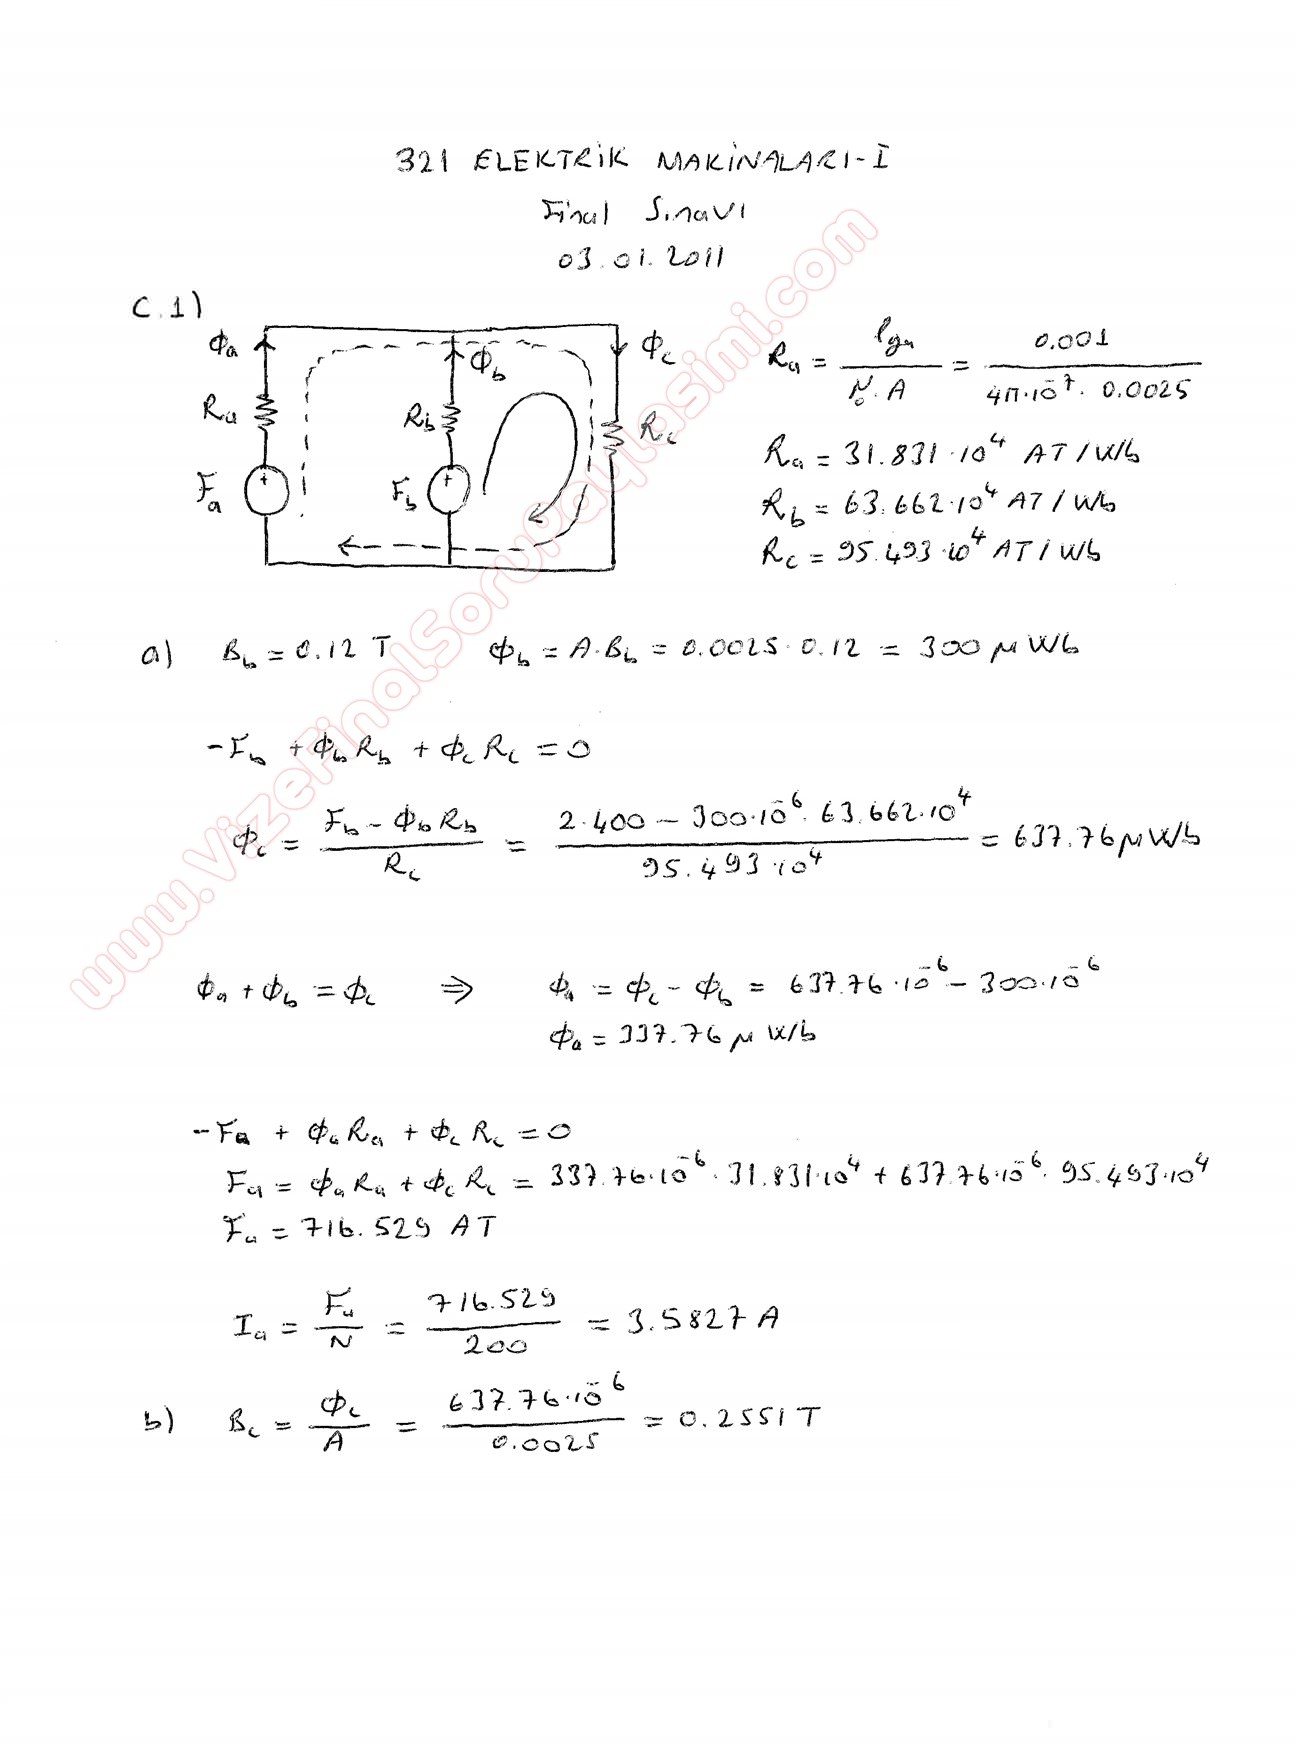 321 ELEKTRİK MAKİNALARI-I
Final Sınavı
03.01.2011
C.1)
Φa
Ra
Fa
+
Φb
Rb
Fb
+
Φc
Rc
Ra = lga / (μ0·A) = 0.001 / (4π·10^-7 · 0.0025)
Ra = 31.831·10^4 AT/Wb
Rb = 63.662·10^4 AT/Wb
Rc = 95.493·10^4 AT/Wb
a) Bb = 0.12 T Φb = A·Bb = 0.0025 · 0.12 = 300 μWb
-Fb + ΦbRb + ΦcRc = 0
Φc = (Fb - ΦbRb) / Rc = (2·400 - 300·10^-6 · 63.662·10^4) / (95.493·10^4) = 637.76 μWb
Φa + Φb = Φc ⇒ Φa = Φc - Φb = 637.76·10^-6 - 300·10^-6
Φa = 337.76 μWb
-Fa + ΦaRa + ΦcRc = 0
Fa = ΦaRa + ΦcRc = 337.76·10^-6 · 31.831·10^4 + 637.76·10^-6 · 95.493·10^4
Fa = 716.529 AT
Ia = Fa / N = 716.529 / 200 = 3.5827 A
b) Bc = Φc / A = 637.76·10^-6 / 0.0025 = 0.2551 T
www.VizeFinalSoruPaylasimi.com